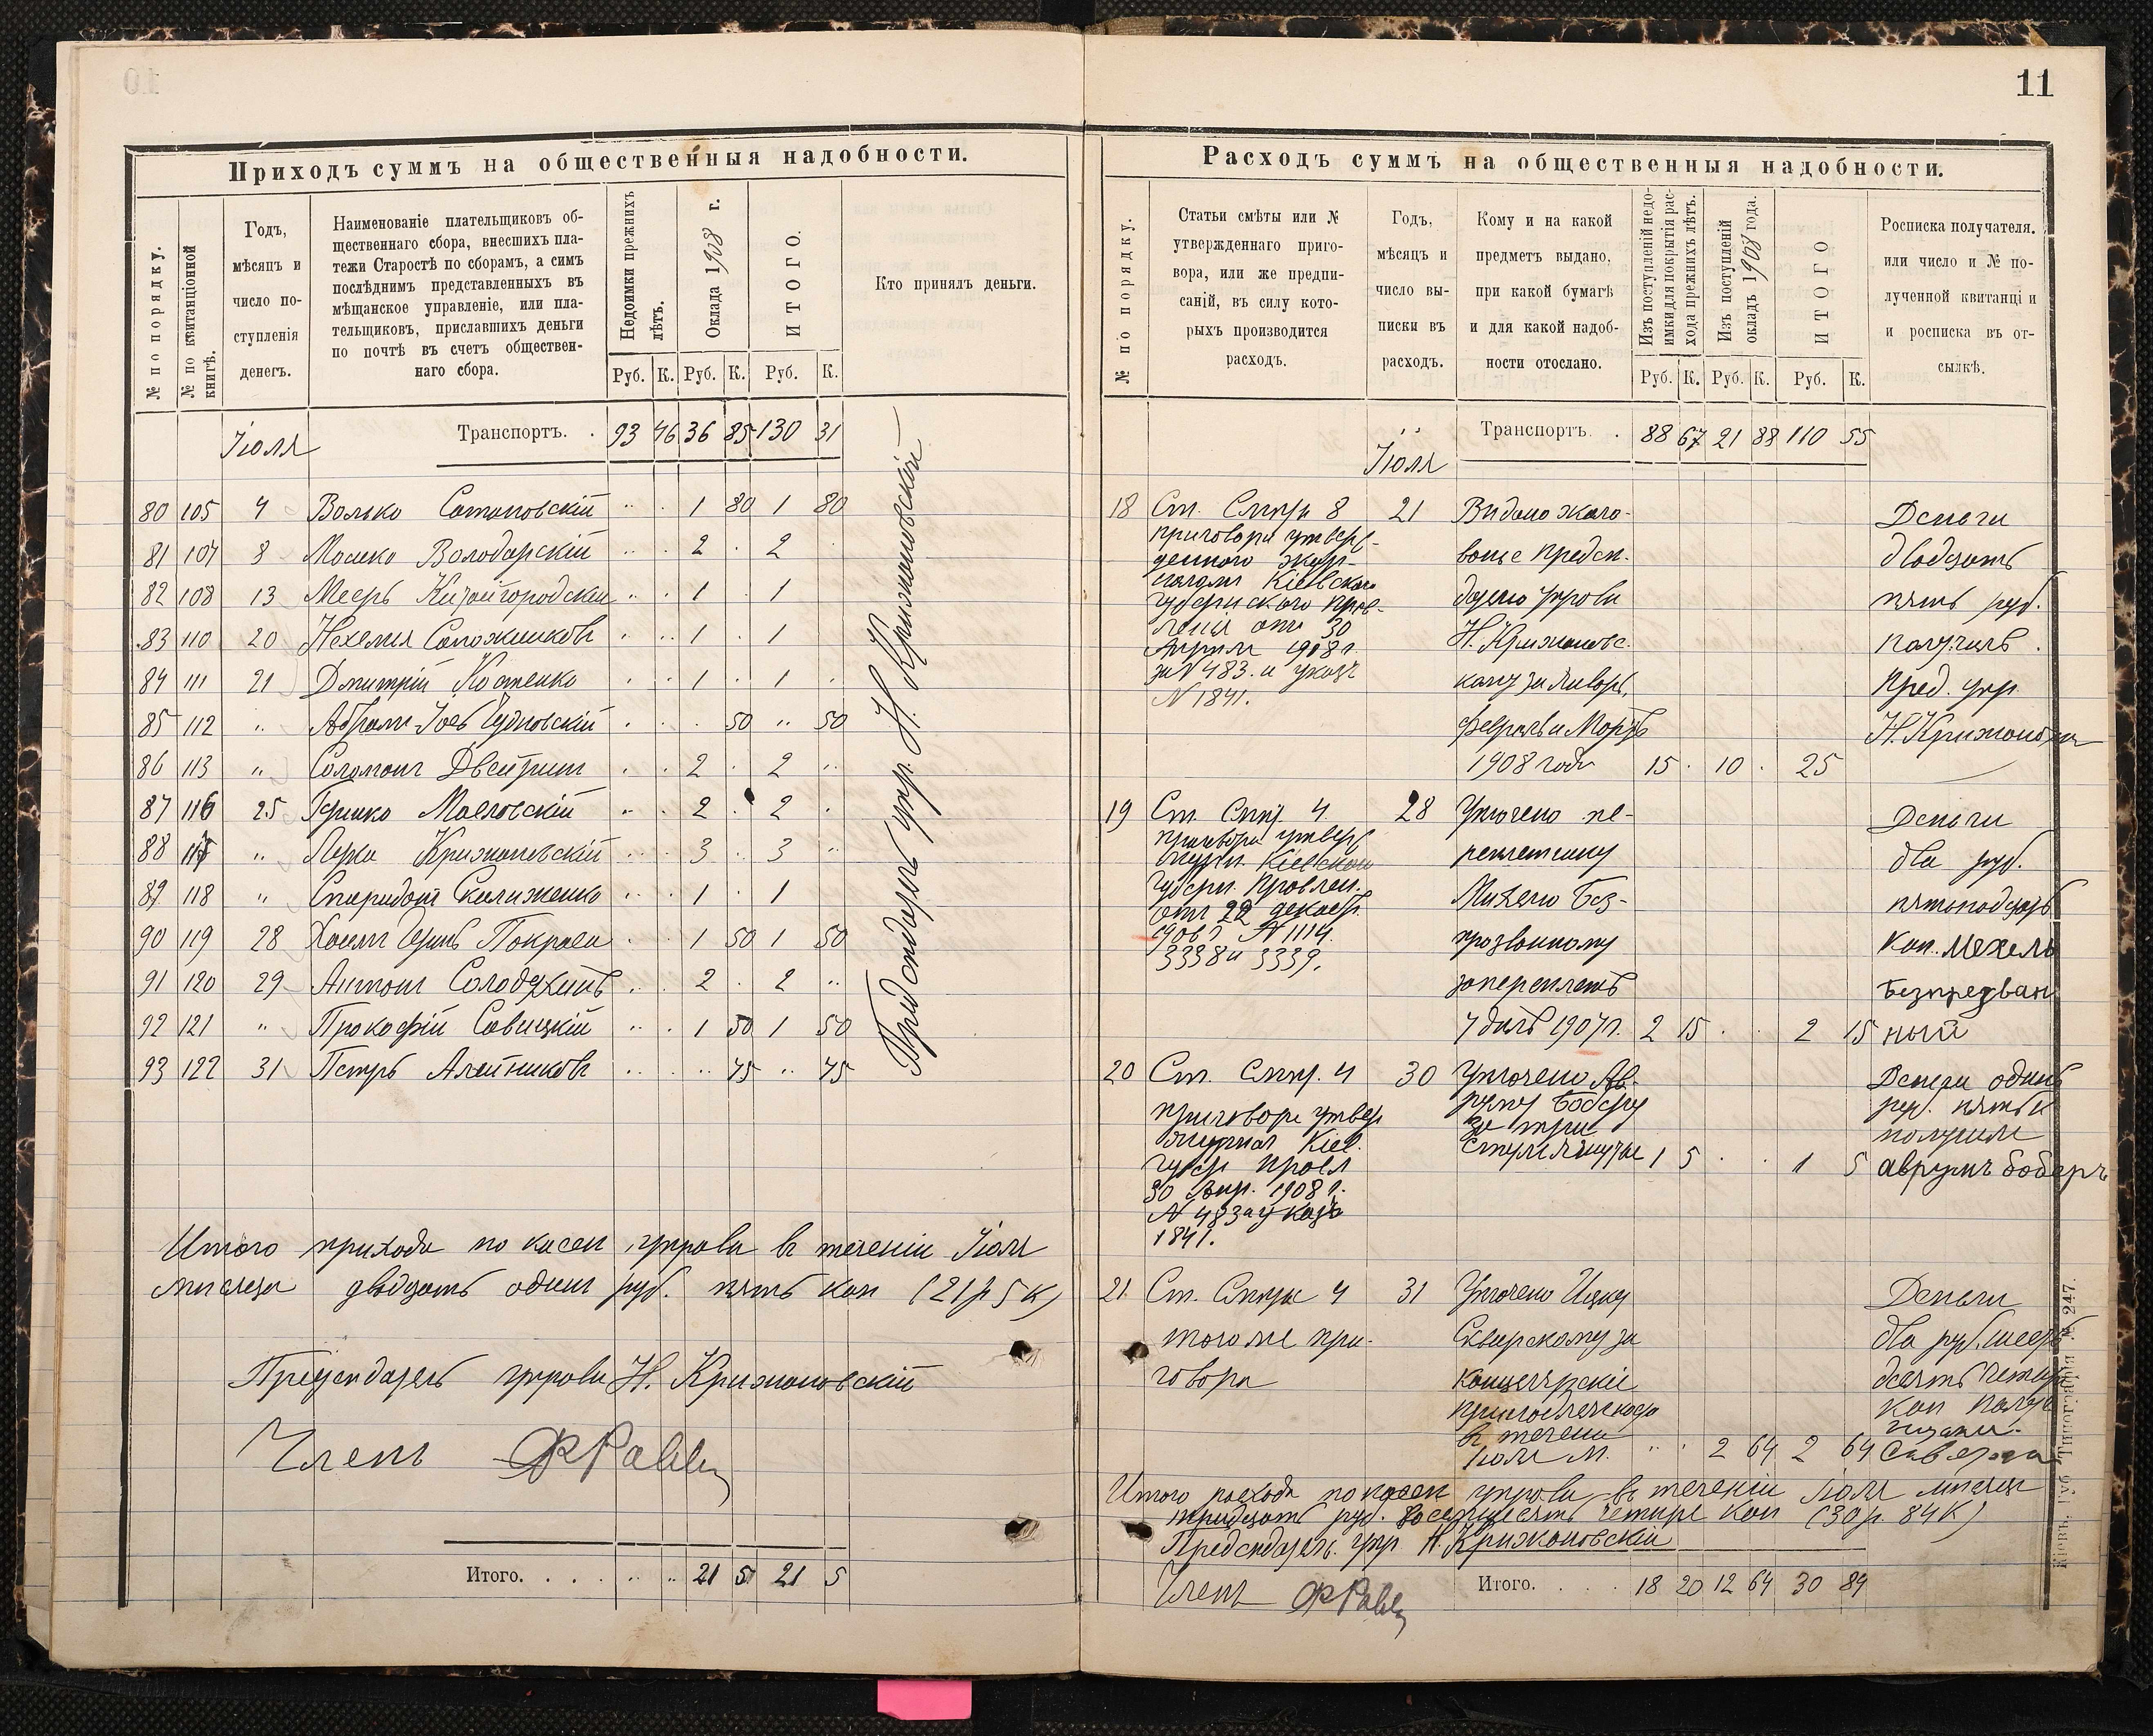 11
Приходъ суммъ на общественныя надобности.
№ по порядку.
№ по квитанціонной книгѣ.
Годъ,
мѣсяцъ и
число по-
ступленія
денегъ.
Наименованіе плательщиковъ об-
щественнаго сбора, внесшихъ пла-
тежи Старостѣ по сборамъ, а симъ
послѣднимъ представленныхъ въ
мѣщанское управленіе, или пла-
тельщиковъ, приславшихъ деньги
по почтѣ въ счетъ обществен-
наго сбора.
Недоимки прежнихъ лѣтъ.
Оклада 1908 г.
ИТОГО.
Кто принялъ деньги.
Руб. К. Руб. К. Руб. К.
Іюля Транспортъ. . 93 46 36 85 130 31
80 105 4 Волько 1 80 1 80
81 107 8 Мошко Володарскій 2 . 2 .
82 108 13 Мееръ Китайгородскій 1 . 1
83 110 20 Нехемія Сапожниковъ 1 . 1
84 111 21 Дмитрій Костенко 1 . 1 .
85 112 " Абрамъ Чудновскій . 50 " 50
86 113 " Соломонъ 2 . 2 "
87 116 25 Гершко 2 . 2 .
88 117 " Лейка Крижановскій 3 . 3 "
89 118 " Спиридонъ 1 . 1
90 119 28 1 50 1 50
91 120 29 Антонъ 2 . 2 "
92 121 " Прокофій Савицкій 1 50 1 50
93 122 31 Петръ Алейниковъ " 75 " 75
Предсѣдатель упр. Н. Крижановскій
Итого прихода по кассѣ управы въ теченіи Іюля
мѣсяца двадцать одинъ руб. пять коп (21 р 5 к)
Предсѣдатель управы Н. Крижановскій
Членъ
Итого. . . . . " . " 21 5 21 5
Расходъ суммъ на общественныя надобности.
№ по порядку.
Статьи смѣты или №
утвержденнаго приго-
вора, или же предпи-
саній, въ силу кото-
рыхъ производится
расходъ.
Годъ,
мѣсяцъ и
число вы-
писки въ
расходъ.
Кому и на какой
предметъ выдано,
при какой бумагѣ
и для какой надоб-
ности отослано.
Изъ поступленій недо-
имки для покрытія рас-
хода прежнихъ лѣтъ.
Изъ поступленій
окладъ 1908 года.
ИТОГО
Росписка получателя.
или число и № по-
лученной квитанціи
и росписка въ от-
сылкѣ.
Руб. К. Руб. К. Руб. К.
Транспортъ . 88 67 21 88 110 55
Іюля
18 Ст. Смѣты 8 21 Видано жало- Деньги
приговора утверж-
ванье Предсѣ- двадцать
деннаго
Кіевскаго дателю управы пять руб.
Губернскаго Прав-
ленія отъ 30 Н. Крижановс- получилъ
Апрѣля 1908 г.
за N 483. и указъ кому за Январь, Пред. упр.
N 1841.
Февраль и Мартъ Н. Крижановскій
1908 года 15 . 10 . 25
19 Ст. Смѣты 4 28 Уплочено пе- Деньги
приговора утверж
Кіевскаго реплетчику два руб.
Губерн. Правлен.
отъ 22 декабря Михелю Без- пятнадцать
N 1114. прозванному коп. Мехель
3338 и 3339.
за переплетъ Безпрезван
7 дѣлъ 1907 г. 2 15 . . 2 15 ный
20 Ст. Смѣты. 4 30 Уплочено Ав- Деньги одинъ
приговора утверж руму Боберу руб. пять к
журнал Кіев. за три получилъ
Губер. Правл 1 5 . . 1 5 аврумъ боберъ
30 Апр. 1908 г.
N 483 и указъ
1841.
21 Ст. Смѣты 4 31 Уплочено Ицку Деньги
того же при- Сквирскому за два руб. шесть
говора канцелярскіе десять четыре
коп
въ теченіи
Іюля м. " . 2 64 2 64
Итого расхода по кассѣ управы въ теченіи Іюля мѣсяца
тридцать руб. восемдесятъ четыре коп (30 р. 84 к)
Предсѣдатель упр Н. Крижановскій
Членъ
Итого. . . . 18 20 12 64 30 84
Кіевъ. Губ. Типографія № 247.